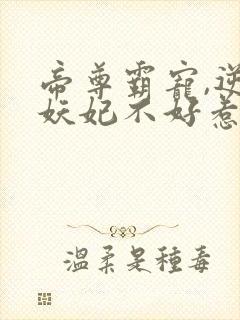 帝尊霸寵,逆
妖妃不好惹
溫柔是種毒